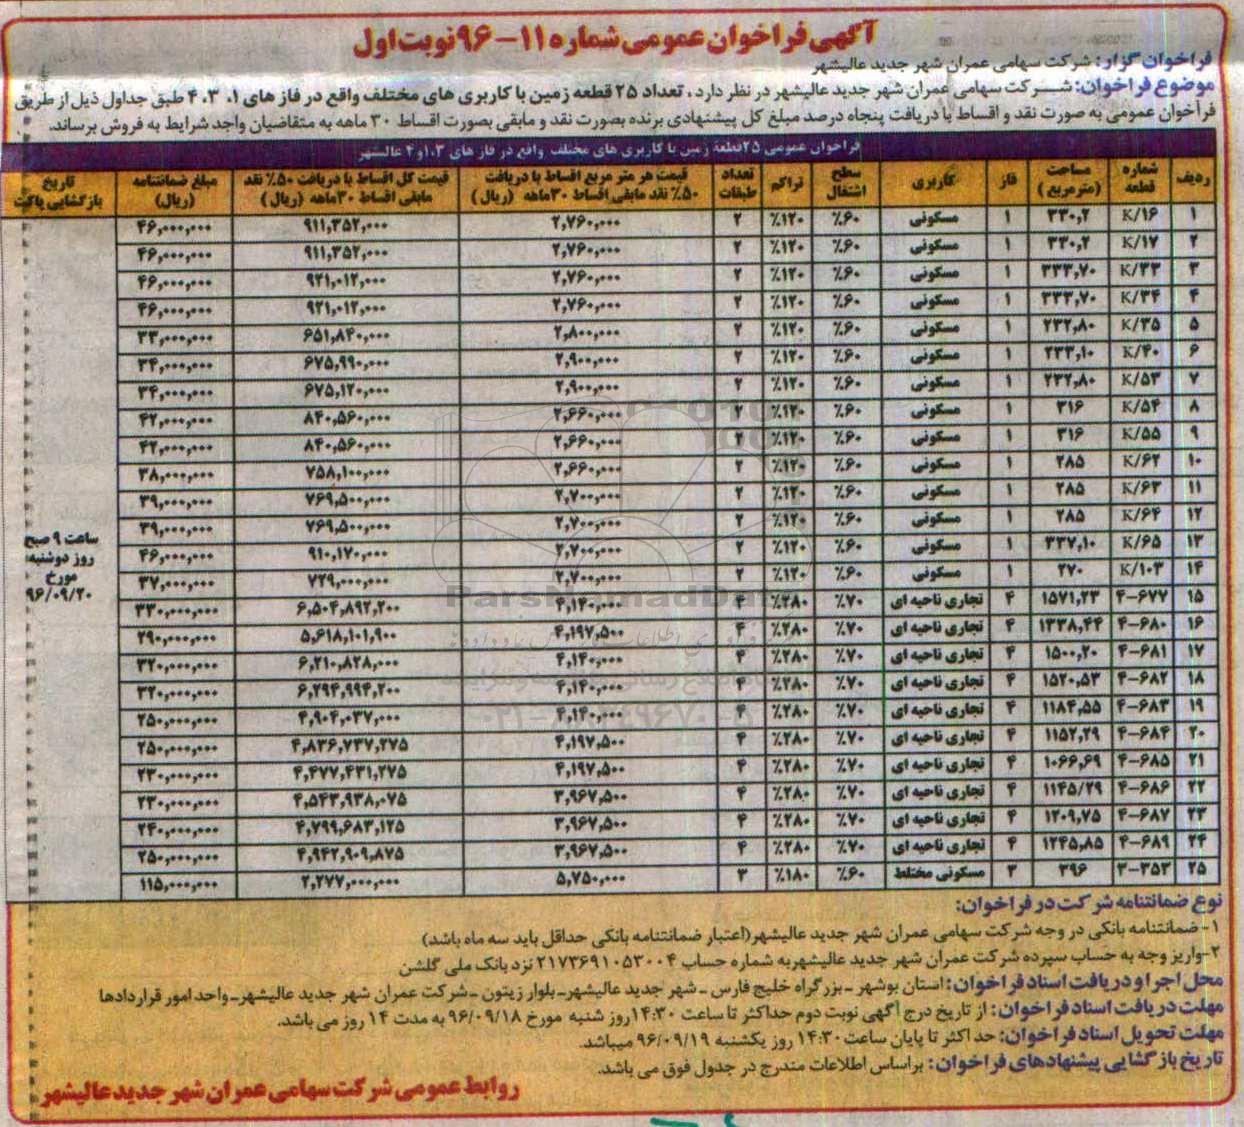 آگهی فراخوان عمومی شماره ۱۱-۹۶ نوبت اول
فراخوان گزار: شرکت سهامی عمران شهر جدید عالیشهر
موضوع فراخوان: شرکت سهامی عمران شهر جدید عالیشهر در نظر دارد، تعداد ۲۵ قطعه زمین با کاربری های مختلف واقع در فاز های ۱، ۳، ۴ طبق جداول ذیل از طریق
فراخوان عمومی به صورت نقد و اقساط با دریافت پنجاه درصد مبلغ کل پیشنهادی برنده بصورت نقد و مابقی بصورت اقساط ۳۰ ماهه به متقاضیان واجد شرایط به فروش برساند.
فراخوان عمومی ۲۵قطعه زمین با کاربری های مختلف واقع در فاز های ۱،۳و۴ عالیشهر
ردیف | شماره قطعه | مساحت (مترمربع) | فاز | کاربری | سطح اشتغال | تراکم | تعداد طبقات | قیمت هر متر مربع اقساط با دریافت ۵۰٪ نقد مابقی اقساط ۳۰ماهه (ریال) | قیمت کل اقساط با دریافت ۵۰٪ نقد مابقی اقساط ۳۰ماهه (ریال) | مبلغ ضمانتنامه (ریال) | تاریخ بازگشایی پاکت
۱ | K/۱۶ | ۳۳۰,۲ | ۱ | مسکونی | ٪۶۰ | ٪۱۲۰ | ۲ | ۲,۷۶۰,۰۰۰ | ۹۱۱,۳۵۲,۰۰۰ | ۴۶,۰۰۰,۰۰۰
۲ | K/۱۷ | ۳۳۰,۲ | ۱ | مسکونی | ٪۶۰ | ٪۱۲۰ | ۲ | ۲,۷۶۰,۰۰۰ | ۹۱۱,۳۵۲,۰۰۰ | ۴۶,۰۰۰,۰۰۰
۳ | K/۳۳ | ۳۳۳,۷۰ | ۱ | مسکونی | ٪۶۰ | ٪۱۲۰ | ۲ | ۲,۷۶۰,۰۰۰ | ۹۲۱,۰۱۲,۰۰۰ | ۴۶,۰۰۰,۰۰۰
۴ | K/۳۴ | ۳۳۳,۷۰ | ۱ | مسکونی | ٪۶۰ | ٪۱۲۰ | ۲ | ۲,۷۶۰,۰۰۰ | ۹۲۱,۰۱۲,۰۰۰ | ۴۶,۰۰۰,۰۰۰
۵ | K/۳۵ | ۲۳۲,۸۰ | ۱ | مسکونی | ٪۶۰ | ٪۱۲۰ | ۲ | ۲,۸۰۰,۰۰۰ | ۶۵۱,۸۴۰,۰۰۰ | ۳۳,۰۰۰,۰۰۰
۶ | K/۴۰ | ۲۳۳,۱۰ | ۱ | مسکونی | ٪۶۰ | ٪۱۲۰ | ۲ | ۲,۹۰۰,۰۰۰ | ۶۷۵,۹۹۰,۰۰۰ | ۳۴,۰۰۰,۰۰۰
۷ | K/۵۳ | ۲۳۲,۸۰ | ۱ | مسکونی | ٪۶۰ | ٪۱۲۰ | ۲ | ۲,۹۰۰,۰۰۰ | ۶۷۵,۱۲۰,۰۰۰ | ۳۴,۰۰۰,۰۰۰
۸ | K/۵۴ | ۳۱۶ | ۱ | مسکونی | ٪۶۰ | ٪۱۲۰ | ۲ | ۲,۶۶۰,۰۰۰ | ۸۴۰,۵۶۰,۰۰۰ | ۴۲,۰۰۰,۰۰۰
۹ | K/۵۵ | ۳۱۶ | ۱ | مسکونی | ٪۶۰ | ٪۱۲۰ | ۲ | ۲,۶۶۰,۰۰۰ | ۸۴۰,۵۶۰,۰۰۰ | ۴۲,۰۰۰,۰۰۰
۱۰ | K/۶۲ | ۲۸۵ | ۱ | مسکونی | ٪۶۰ | ٪۱۲۰ | ۲ | ۲,۶۶۰,۰۰۰ | ۷۵۸,۱۰۰,۰۰۰ | ۳۸,۰۰۰,۰۰۰
۱۱ | K/۶۳ | ۲۸۵ | ۱ | مسکونی | ٪۶۰ | ٪۱۲۰ | ۲ | ۲,۷۰۰,۰۰۰ | ۷۶۹,۵۰۰,۰۰۰ | ۳۹,۰۰۰,۰۰۰
۱۲ | K/۶۴ | ۲۸۵ | ۱ | مسکونی | ٪۶۰ | ٪۱۲۰ | ۲ | ۲,۷۰۰,۰۰۰ | ۷۶۹,۵۰۰,۰۰۰ | ۳۹,۰۰۰,۰۰۰
۱۳ | K/۶۵ | ۳۳۷,۱۰ | ۱ | مسکونی | ٪۶۰ | ٪۱۲۰ | ۲ | ۲,۷۰۰,۰۰۰ | ۹۱۰,۱۷۰,۰۰۰ | ۴۶,۰۰۰,۰۰۰
۱۴ | K/۱۰۳ | ۲۷۰ | ۱ | مسکونی | ٪۶۰ | ٪۱۲۰ | ۲ | ۲,۷۰۰,۰۰۰ | ۷۲۹,۰۰۰,۰۰۰ | ۳۷,۰۰۰,۰۰۰
۱۵ | ۴-۶۷۷ | ۱۵۷۱,۲۳ | ۴ | تجاری ناحیه ای | ٪۷۰ | ٪۲۸۰ | ۴ | ۴,۱۴۰,۰۰۰ | ۶,۵۰۴,۸۹۲,۲۰۰ | ۳۳۰,۰۰۰,۰۰۰
۱۶ | ۴-۶۸۰ | ۱۳۳۸,۴۴ | ۴ | تجاری ناحیه ای | ٪۷۰ | ٪۲۸۰ | ۴ | ۴,۱۹۷,۵۰۰ | ۵,۶۱۸,۱۰۱,۹۰۰ | ۲۹۰,۰۰۰,۰۰۰
۱۷ | ۴-۶۸۱ | ۱۵۰۰,۲۰ | ۴ | تجاری ناحیه ای | ٪۷۰ | ٪۲۸۰ | ۴ | ۴,۱۴۰,۰۰۰ | ۶,۲۱۰,۸۲۸,۰۰۰ | ۳۲۰,۰۰۰,۰۰۰
۱۸ | ۴-۶۸۲ | ۱۵۲۰,۵۳ | ۴ | تجاری ناحیه ای | ٪۷۰ | ٪۲۸۰ | ۴ | ۴,۱۴۰,۰۰۰ | ۶,۲۹۴,۹۹۴,۲۰۰ | ۳۲۰,۰۰۰,۰۰۰
۱۹ | ۴-۶۸۳ | ۱۱۸۴,۵۵ | ۴ | تجاری ناحیه ای | ٪۷۰ | ٪۲۸۰ | ۴ | ۴,۱۴۰,۰۰۰ | ۴,۹۰۴,۰۳۷,۰۰۰ | ۲۵۰,۰۰۰,۰۰۰
۲۰ | ۴-۶۸۴ | ۱۱۵۲,۲۹ | ۴ | تجاری ناحیه ای | ٪۷۰ | ٪۲۸۰ | ۴ | ۴,۱۹۷,۵۰۰ | ۴,۸۳۶,۷۳۷,۲۷۵ | ۲۵۰,۰۰۰,۰۰۰
۲۱ | ۴-۶۸۵ | ۱۰۶۶,۶۹ | ۴ | تجاری ناحیه ای | ٪۷۰ | ٪۲۸۰ | ۴ | ۴,۱۹۷,۵۰۰ | ۴,۴۷۷,۴۳۱,۲۷۵ | ۲۳۰,۰۰۰,۰۰۰
۲۲ | ۴-۶۸۶ | ۱۱۴۵/۲۹ | ۴ | تجاری ناحیه ای | ٪۷۰ | ٪۲۸۰ | ۴ | ۳,۹۶۷,۵۰۰ | ۴,۵۴۳,۹۳۸,۰۷۵ | ۲۳۰,۰۰۰,۰۰۰
۲۳ | ۴-۶۸۷ | ۱۲۰۹,۷۵ | ۴ | تجاری ناحیه ای | ٪۷۰ | ٪۲۸۰ | ۴ | ۳,۹۶۷,۵۰۰ | ۴,۷۹۹,۶۸۳,۱۲۵ | ۲۴۰,۰۰۰,۰۰۰
۲۴ | ۴-۶۸۹ | ۱۲۴۵,۸۵ | ۴ | تجاری ناحیه ای | ٪۷۰ | ٪۲۸۰ | ۴ | ۳,۹۶۷,۵۰۰ | ۴,۹۴۲,۹۰۹,۸۷۵ | ۲۵۰,۰۰۰,۰۰۰
۲۵ | ۳-۳۵۳ | ۳۹۶ | ۳ | مسکونی مختلط | ٪۶۰ | ٪۱۸۰ | ۳ | ۵,۷۵۰,۰۰۰ | ۲,۲۷۷,۰۰۰,۰۰۰ | ۱۱۵,۰۰۰,۰۰۰
ساعت ۹ صبح
روز دوشنبه
مورخ
۹۶/۰۹/۲۰
نوع ضمانتنامه شرکت در فراخوان:
۱- ضمانتنامه بانکی در وجه شرکت سهامی عمران شهر جدید عالیشهر(اعتبار ضمانتنامه بانکی حداقل باید سه ماه باشد)
۲-واریز وجه به حساب سپرده شرکت عمران شهر جدید عالیشهربه شماره حساب ۲۱۷۳۶۹۱۰۵۳۰۰۴ نزد بانک ملی گلشن
محل اجرا و دریافت اسناد فراخوان: استان بوشهر -بزرگراه خلیج فارس -شهر جدید عالیشهر-بلوار زیتون -شرکت عمران شهر جدید عالیشهر-واحد امور قراردادها
مهلت دریافت اسناد فراخوان: از تاریخ درج آگهی نوبت دوم حداکثر تا ساعت ۱۴:۳۰روز شنبه مورخ ۹۶/۰۹/۱۸ به مدت ۱۴ روز می باشد.
مهلت تحویل اسناد فراخوان: حداکثر تا پایان ساعت ۱۴:۳۰ روز یکشنبه ۹۶/۰۹/۱۹ میباشد.
تاریخ بازگشایی پیشنهادهای فراخوان: براساس اطلاعات مندرج در جدول فوق می باشد.
روابط عمومی شرکت سهامی عمران شهر جدید عالیشهر